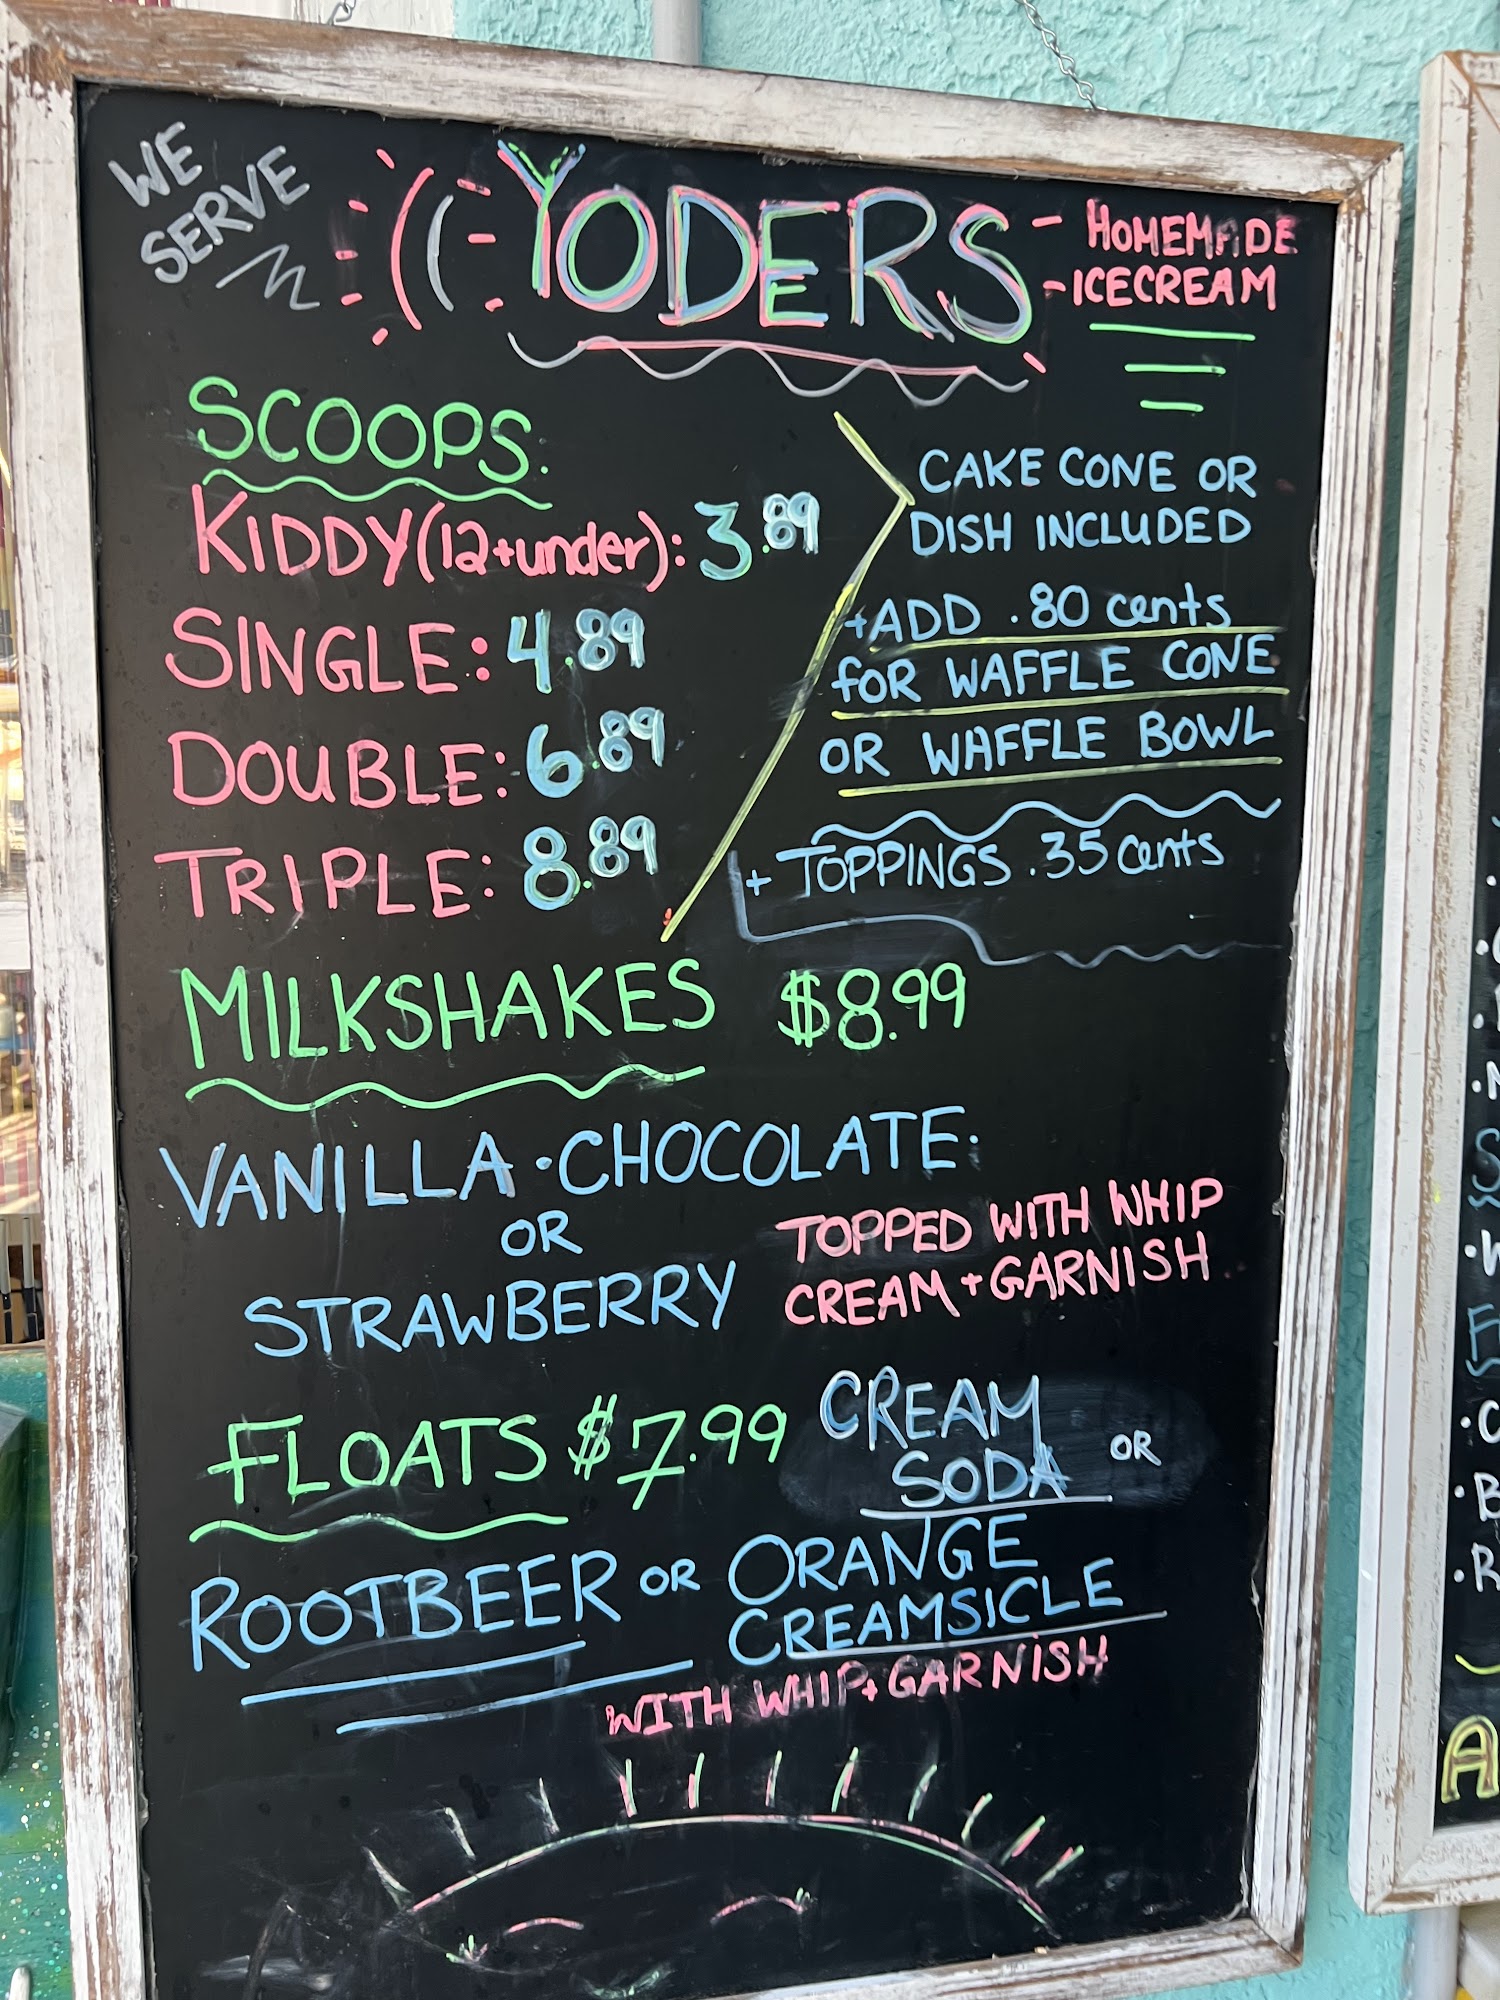 WE
SERVE
YODERS
- HOMEMADE
- ICECREAM
SCOOPS:
KIDDY (12+under): 3.89
SINGLE: 4.89
DOUBLE: 6.89
TRIPLE: 8.89
CAKE CONE OR
DISH INCLUDED
+ADD .80 cents
for WAFFLE CONE
OR WAFFLE BOWL
+ TOPPINGS .35 cents
MILKSHAKES $8.99
VANILLA · CHOCOLATE.
OR
STRAWBERRY
TOPPED WITH WHIP
CREAM + GARNISH
FLOATS $7.99
CREAM
SODA OR
ROOTBEER OR ORANGE
CREAMSICLE
WITH WHIP+GARNISH